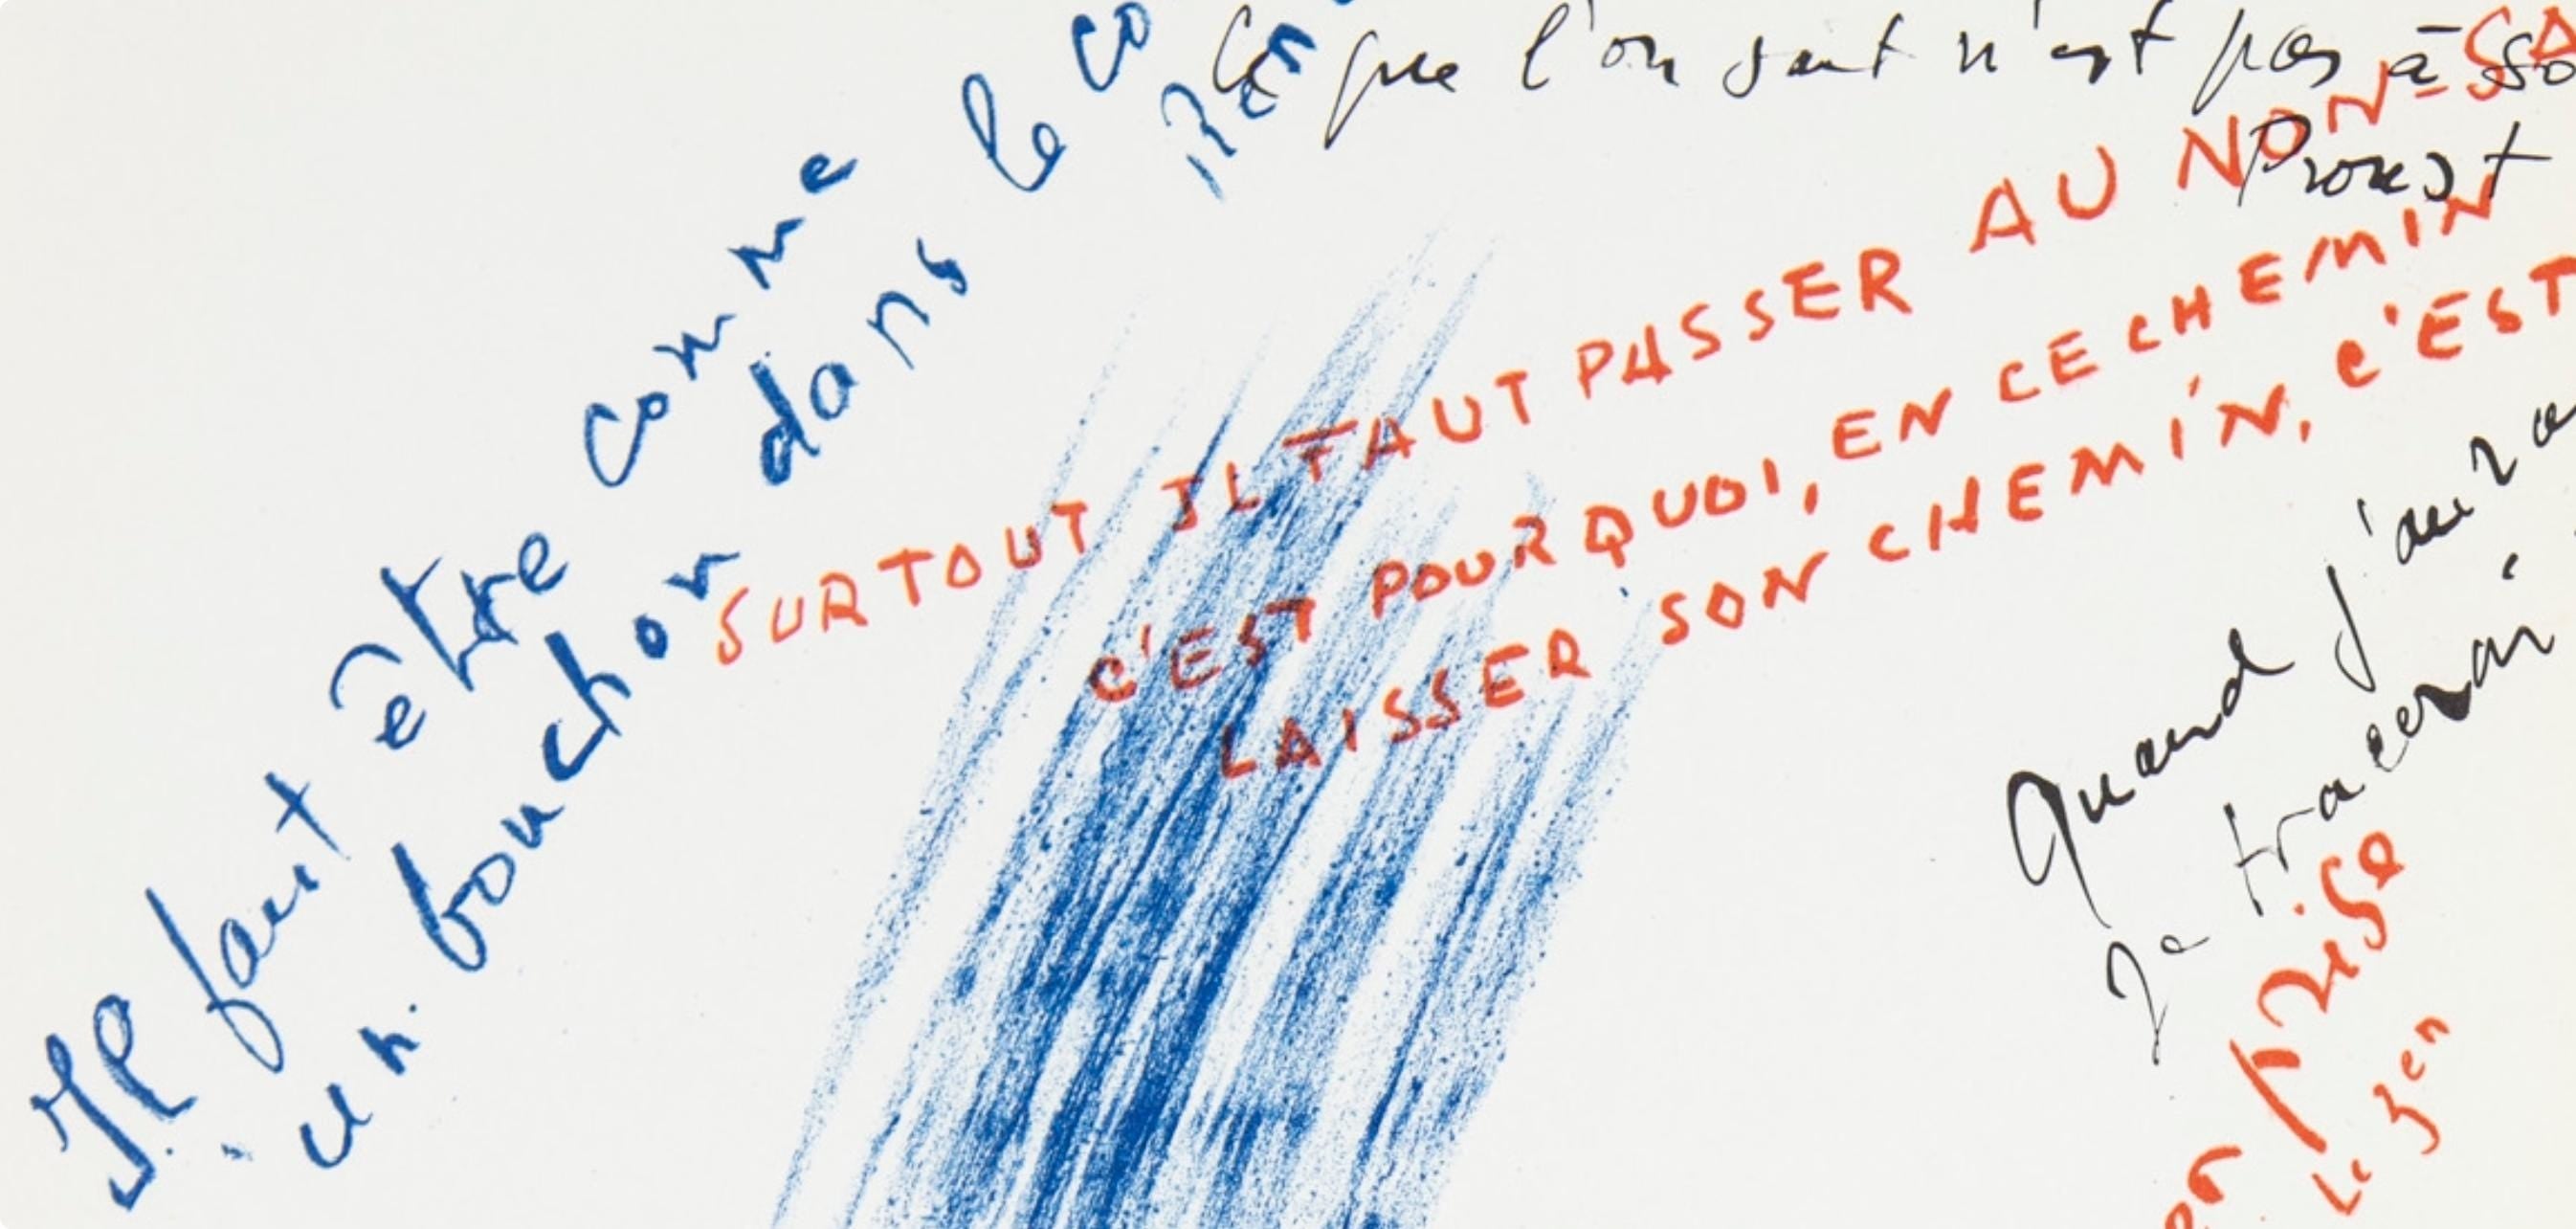 Il faut être comme
un bouchon dans le co
Ren
Ce que l'on sait n'est pas à so
Proust
SURTOUT IL FAUT PASSER AU NON-SA
C'EST POURQUOI, EN CE CHEMIN
LAISSER SON CHEMIN, C'EST
Quand j'aura
Je tracerai
prise
Le zen